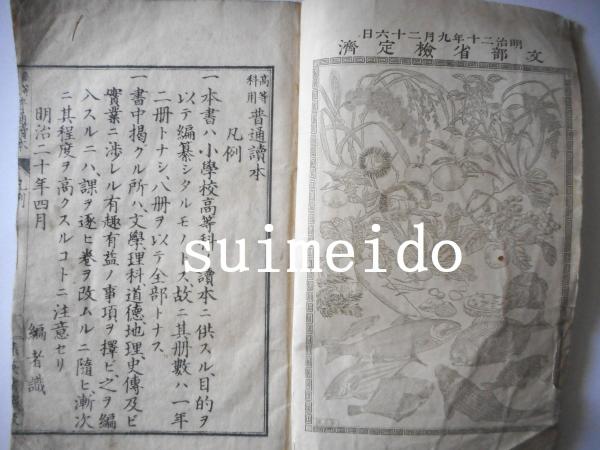 明治二十年九月二十六日
文部省檢定濟
高等科用 普通讀本
凡例
一本書ハ小學校高等科ノ讀本ニ供スル目的ヲ
以テ編纂シタルモノトス、故ニ其册數ハ一年
二册トナシ、八册ヲ以テ全部トナス
一書中掲クル所ハ、文學、理科、道徳、地理、史傳及ビ
實業ニ渉レル有趣有益ノ事項ヲ擇ビ、之ヲ編
入スルニハ、課ヲ逐ヒ卷ヲ改ムルニ隨ヒ、漸次
ニ其程度ヲ高クスルコトニ注意セリ
明治二十年四月
編者識
suimeido